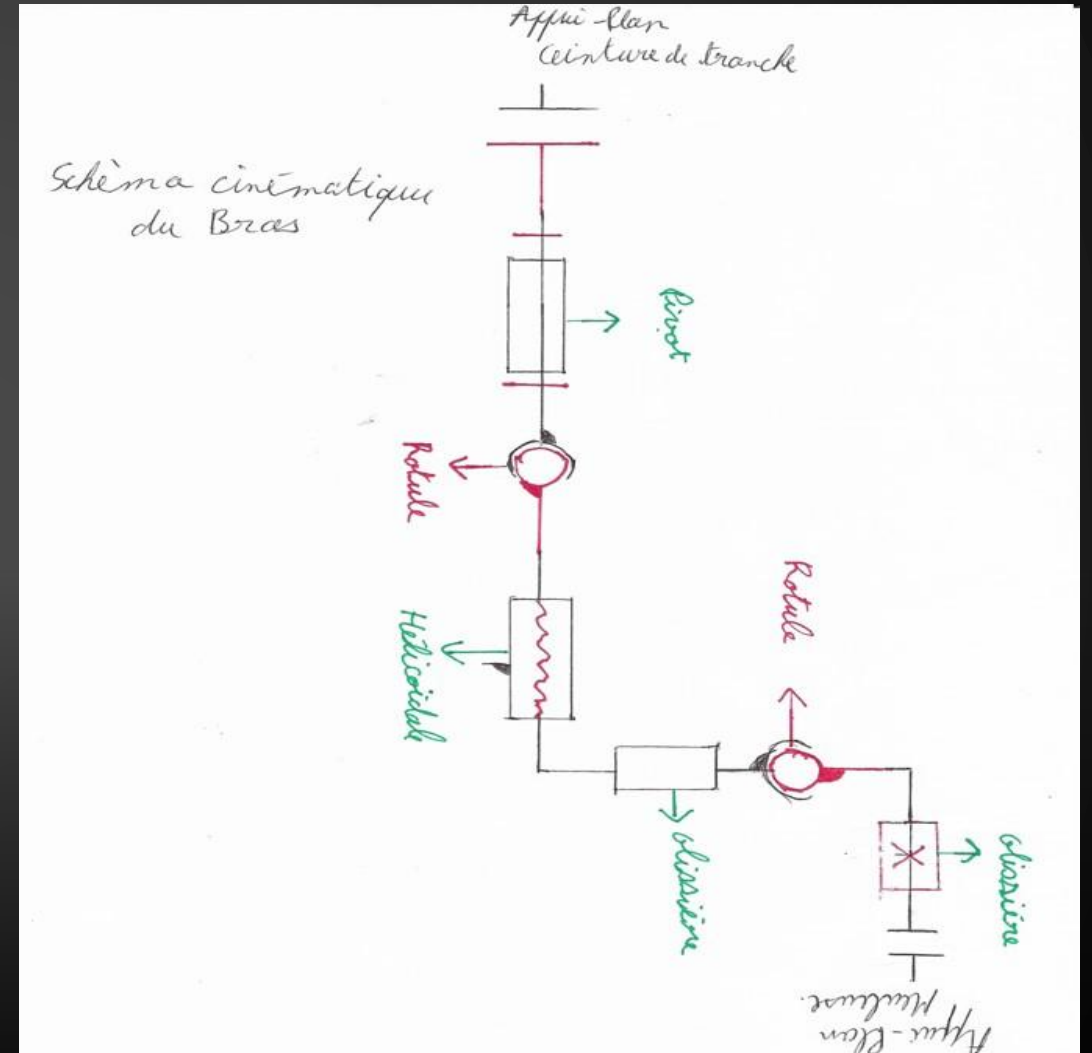 Appui-Plan
Ceinture de tranche
Schèma cinématique
du Bras
Pivot
Rotule
Rotule
Hélicoïdale
Glissière
Glissière
Appui-Plan
Meuleuse.